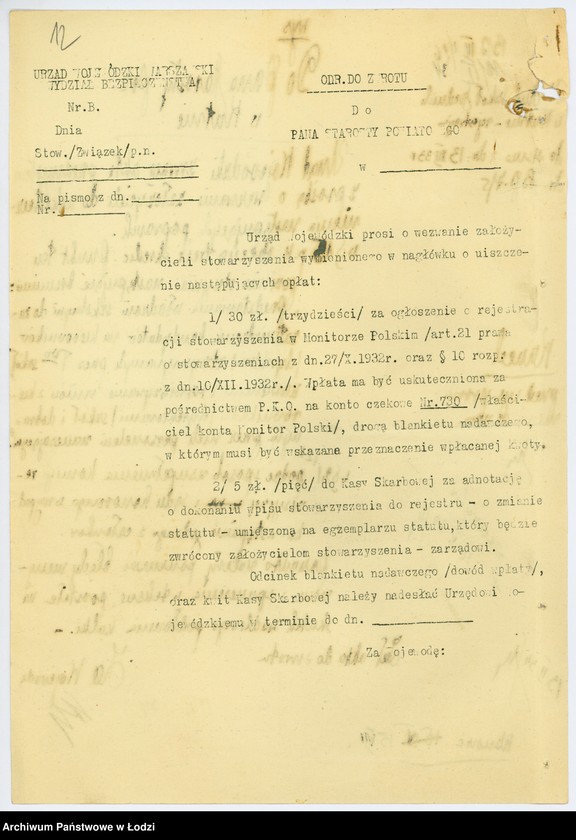 12
URZĄD WOJEWÓDZKI WARSZAWSKI
WYDZIAŁ BEZPIECZEŃSTWA
Nr.B.
Dnia
Stow./Związek/p.n.
Na pismo z dn.
Nr.
ODR.DO ZWROTU
Do
PANA STAROSTY POWIATOWEGO
w
Urząd Wojewódzki prosi o wezwanie założy-
cieli stowarzyszenia wymienionego w nagłówku o uiszcze-
nie następujących opłat:
1/ 30 zł. /trzydzieści/ za ogłoszenie o rejestra-
cji stowarzyszenia w Monitorze Polskim /art.21 prawa
o stowarzyszeniach z dn.27/X.1932r. oraz § 10 rozp.
z dn.10/XII.1932r./. Wpłata ma być uskuteczniona za
pośrednictwem P.K.O. na konto czekowe Nr.730 /właści-
ciel konta Monitor Polski/, drogą blankietu nadawczego,
w którym musi być wskazane przeznaczenie wpłacanej kwoty.
2/ 5 zł. /pięć/ do Kasy Skarbowej za adnotację
o dokonaniu wpisu stowarzyszenia do rejestru - o zmianie
statutu - umieszoną na egzemplarzu statutu,który będzie
zwrócony założycielom stowarzyszenia - zarządowi.
Odcinek blankietu nadawczego /dowód wpłaty/,
oraz kwit Kasy Skarbowej należy nadesłać Urzędowi Wo-
jewódzkiemu w terminie do dn.
Za Wojewodę:
Archiwum Państwowe w Łodzi